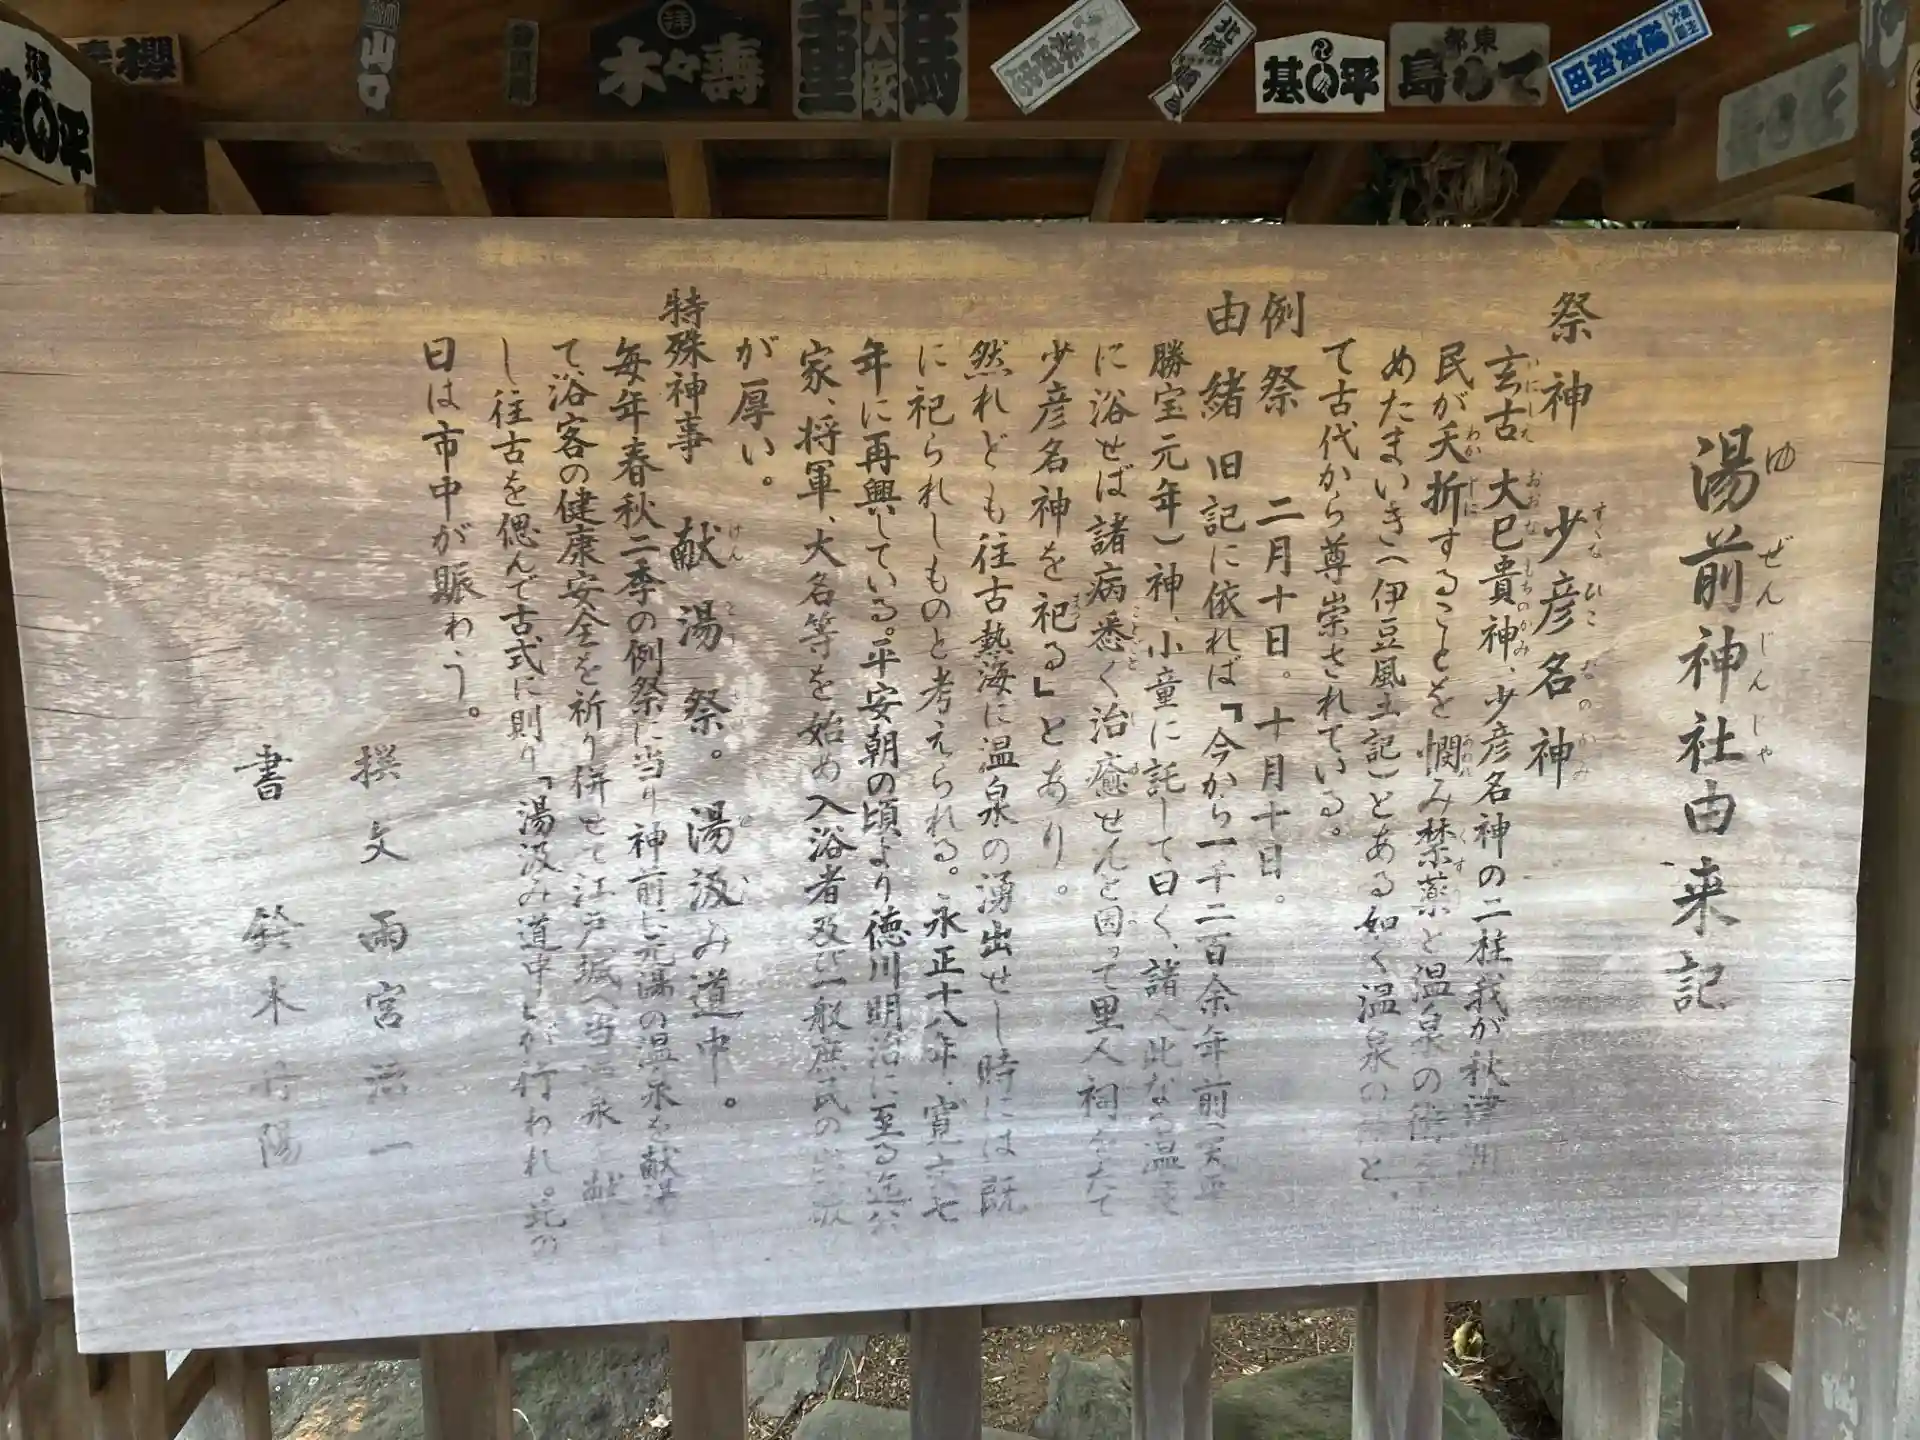 湯前神社由来記
ゆぜんじんじゃ
祭神 少彦名神
すくなひこなのかみ
玄古大巳貴神、少彦名神の二柱我が秋津洲
いにしえ おおなむちのかみ
民が夭折することを憫み禁薬と温泉の術を
わかじに あわれ くすり
めたまいき(伊豆風土記)とある如く温泉の神と
て古代から尊崇されている。
例祭 二月十日。十月十日。
由緒 旧記に依れば『今から一千二百余年前(天平
勝宝元年)神、小童に託して曰く、諸人此なる温泉
に浴せば諸病悉く治癒せんと因って里人祠を建て
ことごと
少彦名神を祀る』とあり。
まつ
然れども往古熱海に温泉の湧出せし時には既
に祀られしものと考えられる。永正十八年、寛文七
年に再興している。平安朝の頃より徳川明治に至る迄公
家、将軍、大名等を始め入浴者及び一般庶民の崇敬
が厚い。
特殊神事 献湯祭。湯汲み道中。
けんとうさい ゆく
毎年春秋二季の例祭に当り神前に元湯の温泉を献湯し
て浴客の健康安全を祈り併せて江戸城へ当温泉を献上
し往古を偲んで古式に則り「湯汲み道中」が行われ。此の
日は市中が賑わう。
撰文 雨宮 一
書 鈴木丹陽
櫻
平
山口
木々壽
大塚
重
馬
基 平
東都